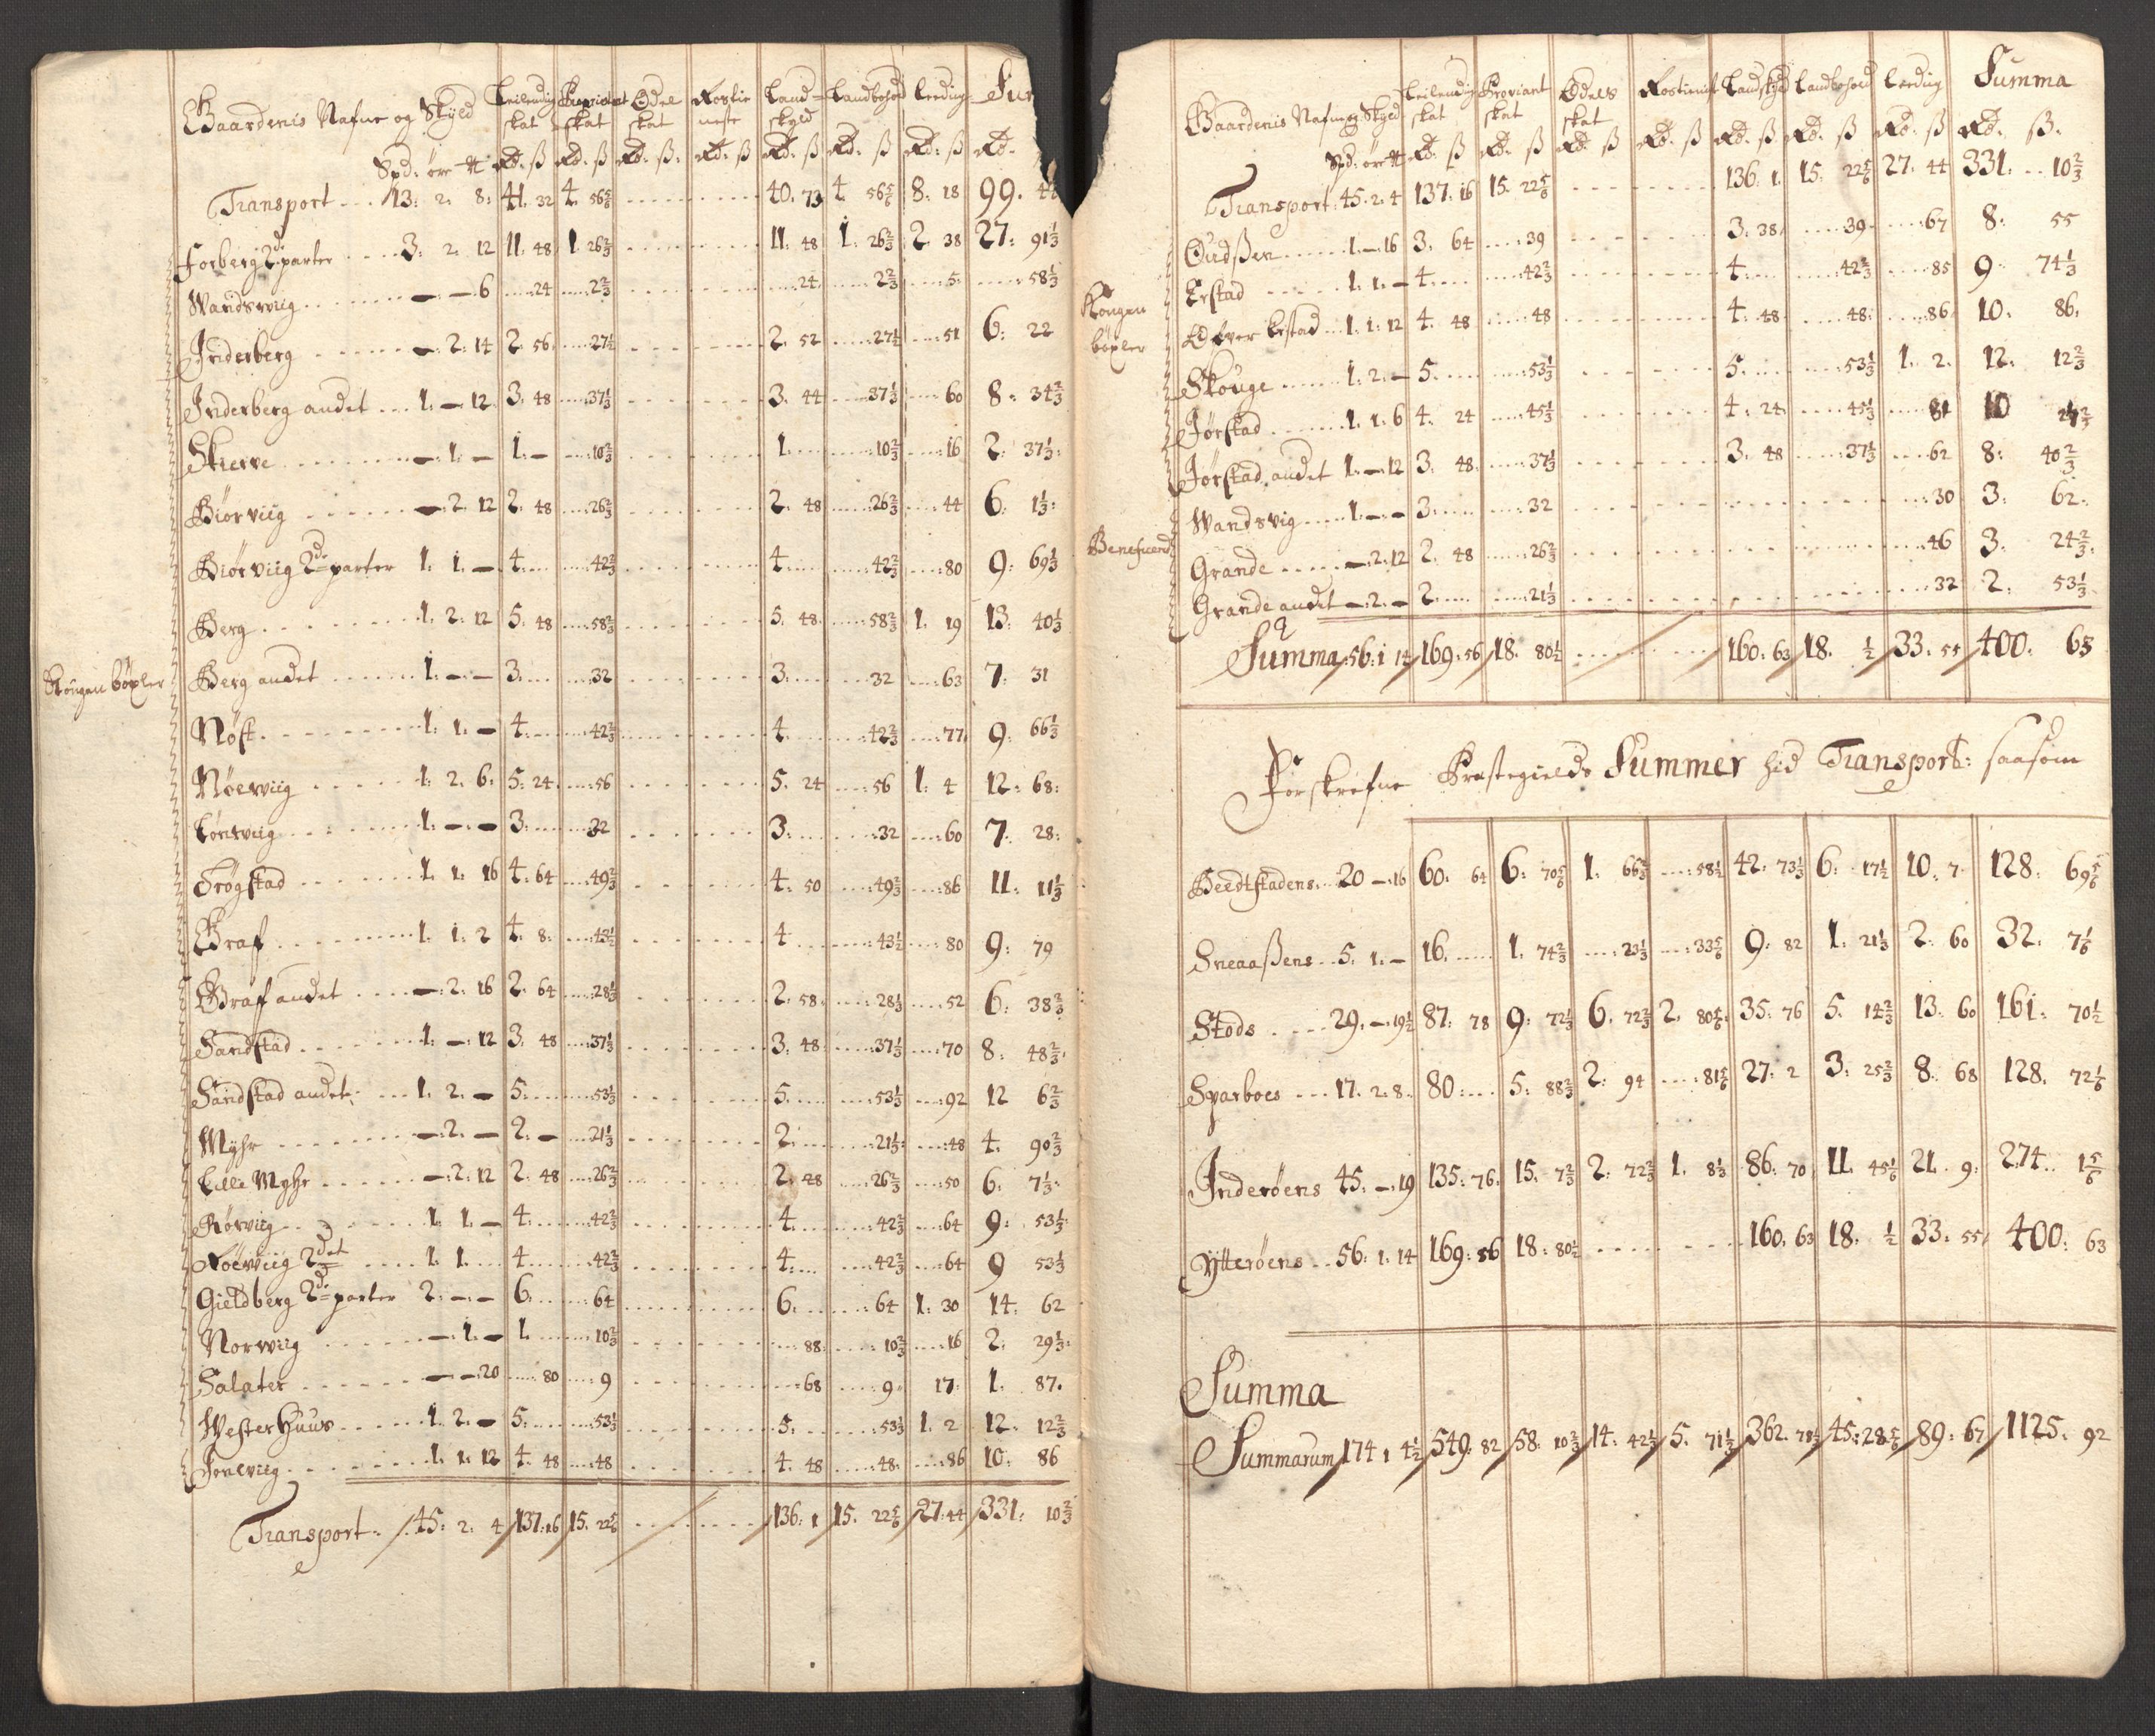 Gaardenis Nafne og Skyld Leilending skat Proviant skat Odel skat Rostie neste Land= skyld Landbohold Leeding Sum
Spd: øre tt Rd. ß Rd. ß Rd. ß: Rd: ß Rd. ß Rd: ß Rd: ß Rd.
Transport 13: 2: 8: 41. 32 4. 56 5/6 40. 73 4. 56 5/6 8: 18 99. 44
Forberg 2de parter 3: 2: 12 11: 48 1. 26 2/3 11: 48 1. 26 2/3 2. 38 27: 91 1/3
Wandswiig – – 6 24 2 2/3 24 2 2/3 5 58 1/3
Inderberg – 2: 14 2. 56 27 1/2 2. 52 27 1/2 51 6: 22
Inderberg andet 1. – 12 3. 48 37 1/3 3. 44 37 1/3 60 8: 34 2/3
Skierve – 1. – 1: – 10 2/3 1. 10 2/3 16 2: 37 1/3
Biørviig – 2: 12 2. 48 26 2/3 2. 48 26 2/3 44 6. 1 1/3
Biørviig 2de parter 1. 1. – 4. 42 2/3 4. 42 2/3 80 9: 69 1/3
Berg 1. 2: 12 5. 48 58 2/3 5. 48 58 2/3 1. 19 13: 40 1/3
Kongen bøxler Berg andet 1. – – 3. 32 3. 32 63 7: 31
Nøst 1. 1. – 4. 42 2/3 4. 42 2/3 77 9: 66 1/3
Nøerviig 1. 2. 6: 5: 24 56 5. 24 56 1: 4 12: 68:
Lønwiig 1. – – 3. 32 3. 32 60 7. 28:
Trøgstad 1. 1. 16 4. 64 49 2/3 4. 50 49 2/3 86 11: 11 1/3
Graf 1. 1. 2 4. 8: 43 1/2 4 43 1/2 80 9: 79
Graff andet – 2: 16 2. 64 28 1/3 2: 58 28 1/3 52 6: 38 2/3
Sandstad 1. – 12 3. 48 37 1/3 3. 48 37 1/3 70 8: 48 2/3
Sandstad andet 1. 2. – 5. 53 1/3 5. 53 1/3 92 12 6 2/3
Myhr – 2. – 2. – 21 1/3 2. 21 1/3 48 4. 90 2/3
Lille Myhr – 2: 12 2. 48 26 2/3 2. 28 26 2/3 50 6. 7 1/3
Rørviig 1. 1. – 4. 42 2/3 4. 42 2/3 64 9: 53 1/3
Roerviig 2det 1. 1. 4 42 2/3 4. 42 2/3 64 9 53 1/3
Gieldberg 2de parter 2. – – 6. 64 6. 64 1: 30 14. 62
Norwiig – 1. – 1. 10 2/3 88: 10 2/3 16 2: 29 1/3
Salater – – 20 80 9 68 9 17 1. 87.
Wester Huus 1. 2. – 5. 53 1/3 5. 53 1/3 1. 2 12. 12 2/3
Jonwiig 1. 1: 12 4. 48 48 4. 48 48 86 10: 86
Transport: 45: 2. 4 137:16 15. 22 5/6 136: 1 15. 22 5/6 27:44 331: 10 2/3
Gaardenis Nafn og Skyld Leilending skat Proviant skat Odels skat Rostienist Landskyld Landbohold Leeding Summa
Spd: øre tt Rd. ß Rd. ß Rd. ß Rd. ß Rd. ß Rd. ß Rd. ß Rd. ß.
Transport: 45: 2: 4 137: 16 15. 22 5/6 136: 1. 15: 22 5/6 27: 44 331. 10 2/3
Oudßen 1. – 16 3. 64 39 3: 38 39 67 8: 55
Kongen bøxler Erstad 1. 1. – 4. 42 2/3 4. 42 2/3 85 9: 74 1/3
Ed Over Erstad 1. 1: 12 4. 48 48 4. 48 48 86 10. 86.
Skouge 1. 2. – 5. 53 1/3 5. 53 1/3 1. 2. 12. 12 2/3
Jørstad 1. 1. 6 4. 24 45 1/3 4. 24 45 1/3 81 10
Jørstad andet 1. – 12 3. 48 37 1/3 3. 48 37 1/3 62 8: 40 2/3
Wandsvig 1. – – 3. 32 30 3: 62.
Beneficeret Grande – 2: 12 2. 48 26 2/3 46 3: 24 2/3
Grande andet – 2. – 2. 21 1/3 32 2. 53 1/3
Summa 56: 1 14 169. 56 18. 80 1/2 160: 63 18. 1/2 33. 55 400. 63
Forskrefne Præstegields Summer hid Transport: saasom
Beedtstadens 20 – 16 60. 64 6: 70 5/6 1. 66 2/3 58 1/2 42: 73 1/3 6: 17 1/2 10. 7 128: 69 5/6
Sneaaßens 5. 1. – 16. 1. 74 2/3 23 1/3 33 5/6 9: 82 1. 21 1/3 2: 60 32. 7 1/6
Stods 29. – 19 1/2 87: 78 9: 72 1/3 6. 72 2/3 2. 80 5/6 35: 76 5. 14 2/3 13: 60 161: 70 1/2
Sparboes 17. 2: 8 80: 5: 88 2/3 2: 94 81 5/6 27: 2 3: 25 2/3 8: 68 128. 72 1/6
Inderøens 45. – 19 135: 76. 15. 7 2/3 2: 72 2/3 1. 8 1/3 86: 70 11. 45 1/6 21. 9: 274: 1 5/6
Ytterøens 56: 1. 14 169: 56 18: 80 1/2 160. 63 18. 1/2 33: 55 400: 63
Summa
Summarum 174 1 4 1/2 549: 82 58: 10 2/3 14: 42 1/3 5. 71 1/3 362. 78 1/3 45: 28 5/6 89: 67 1125: 92